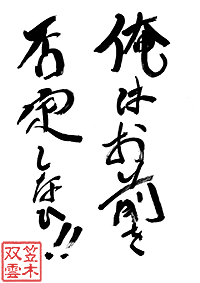 俺はお前を
否定しない!!
笠木
双雲